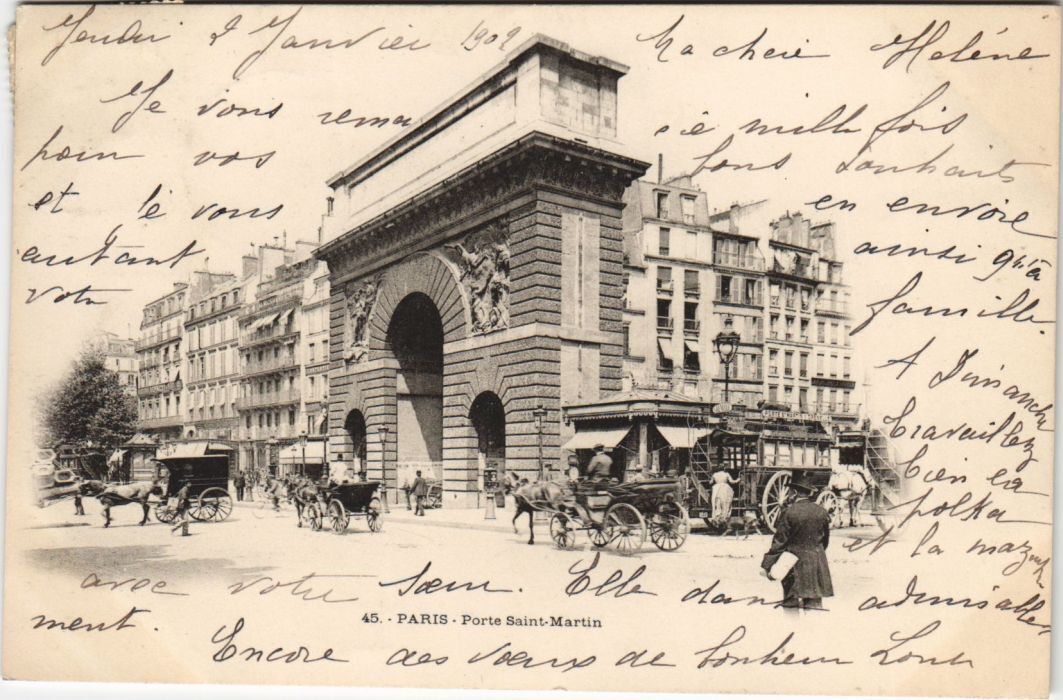 Jeudi 2 Janvier 1902 Ma chère Hélène
Je vous remercie mille fois
pour vos bons souhaits
et je vous en envoie
autant ainsi qu'à
votre famille.
A Dimanche
Travaillez
bien la
polka
et la mazurka
avec votre Sœur. Elle danse admirablement.
45. - PARIS - Porte Saint-Martin
Encore des vœux de bonheur